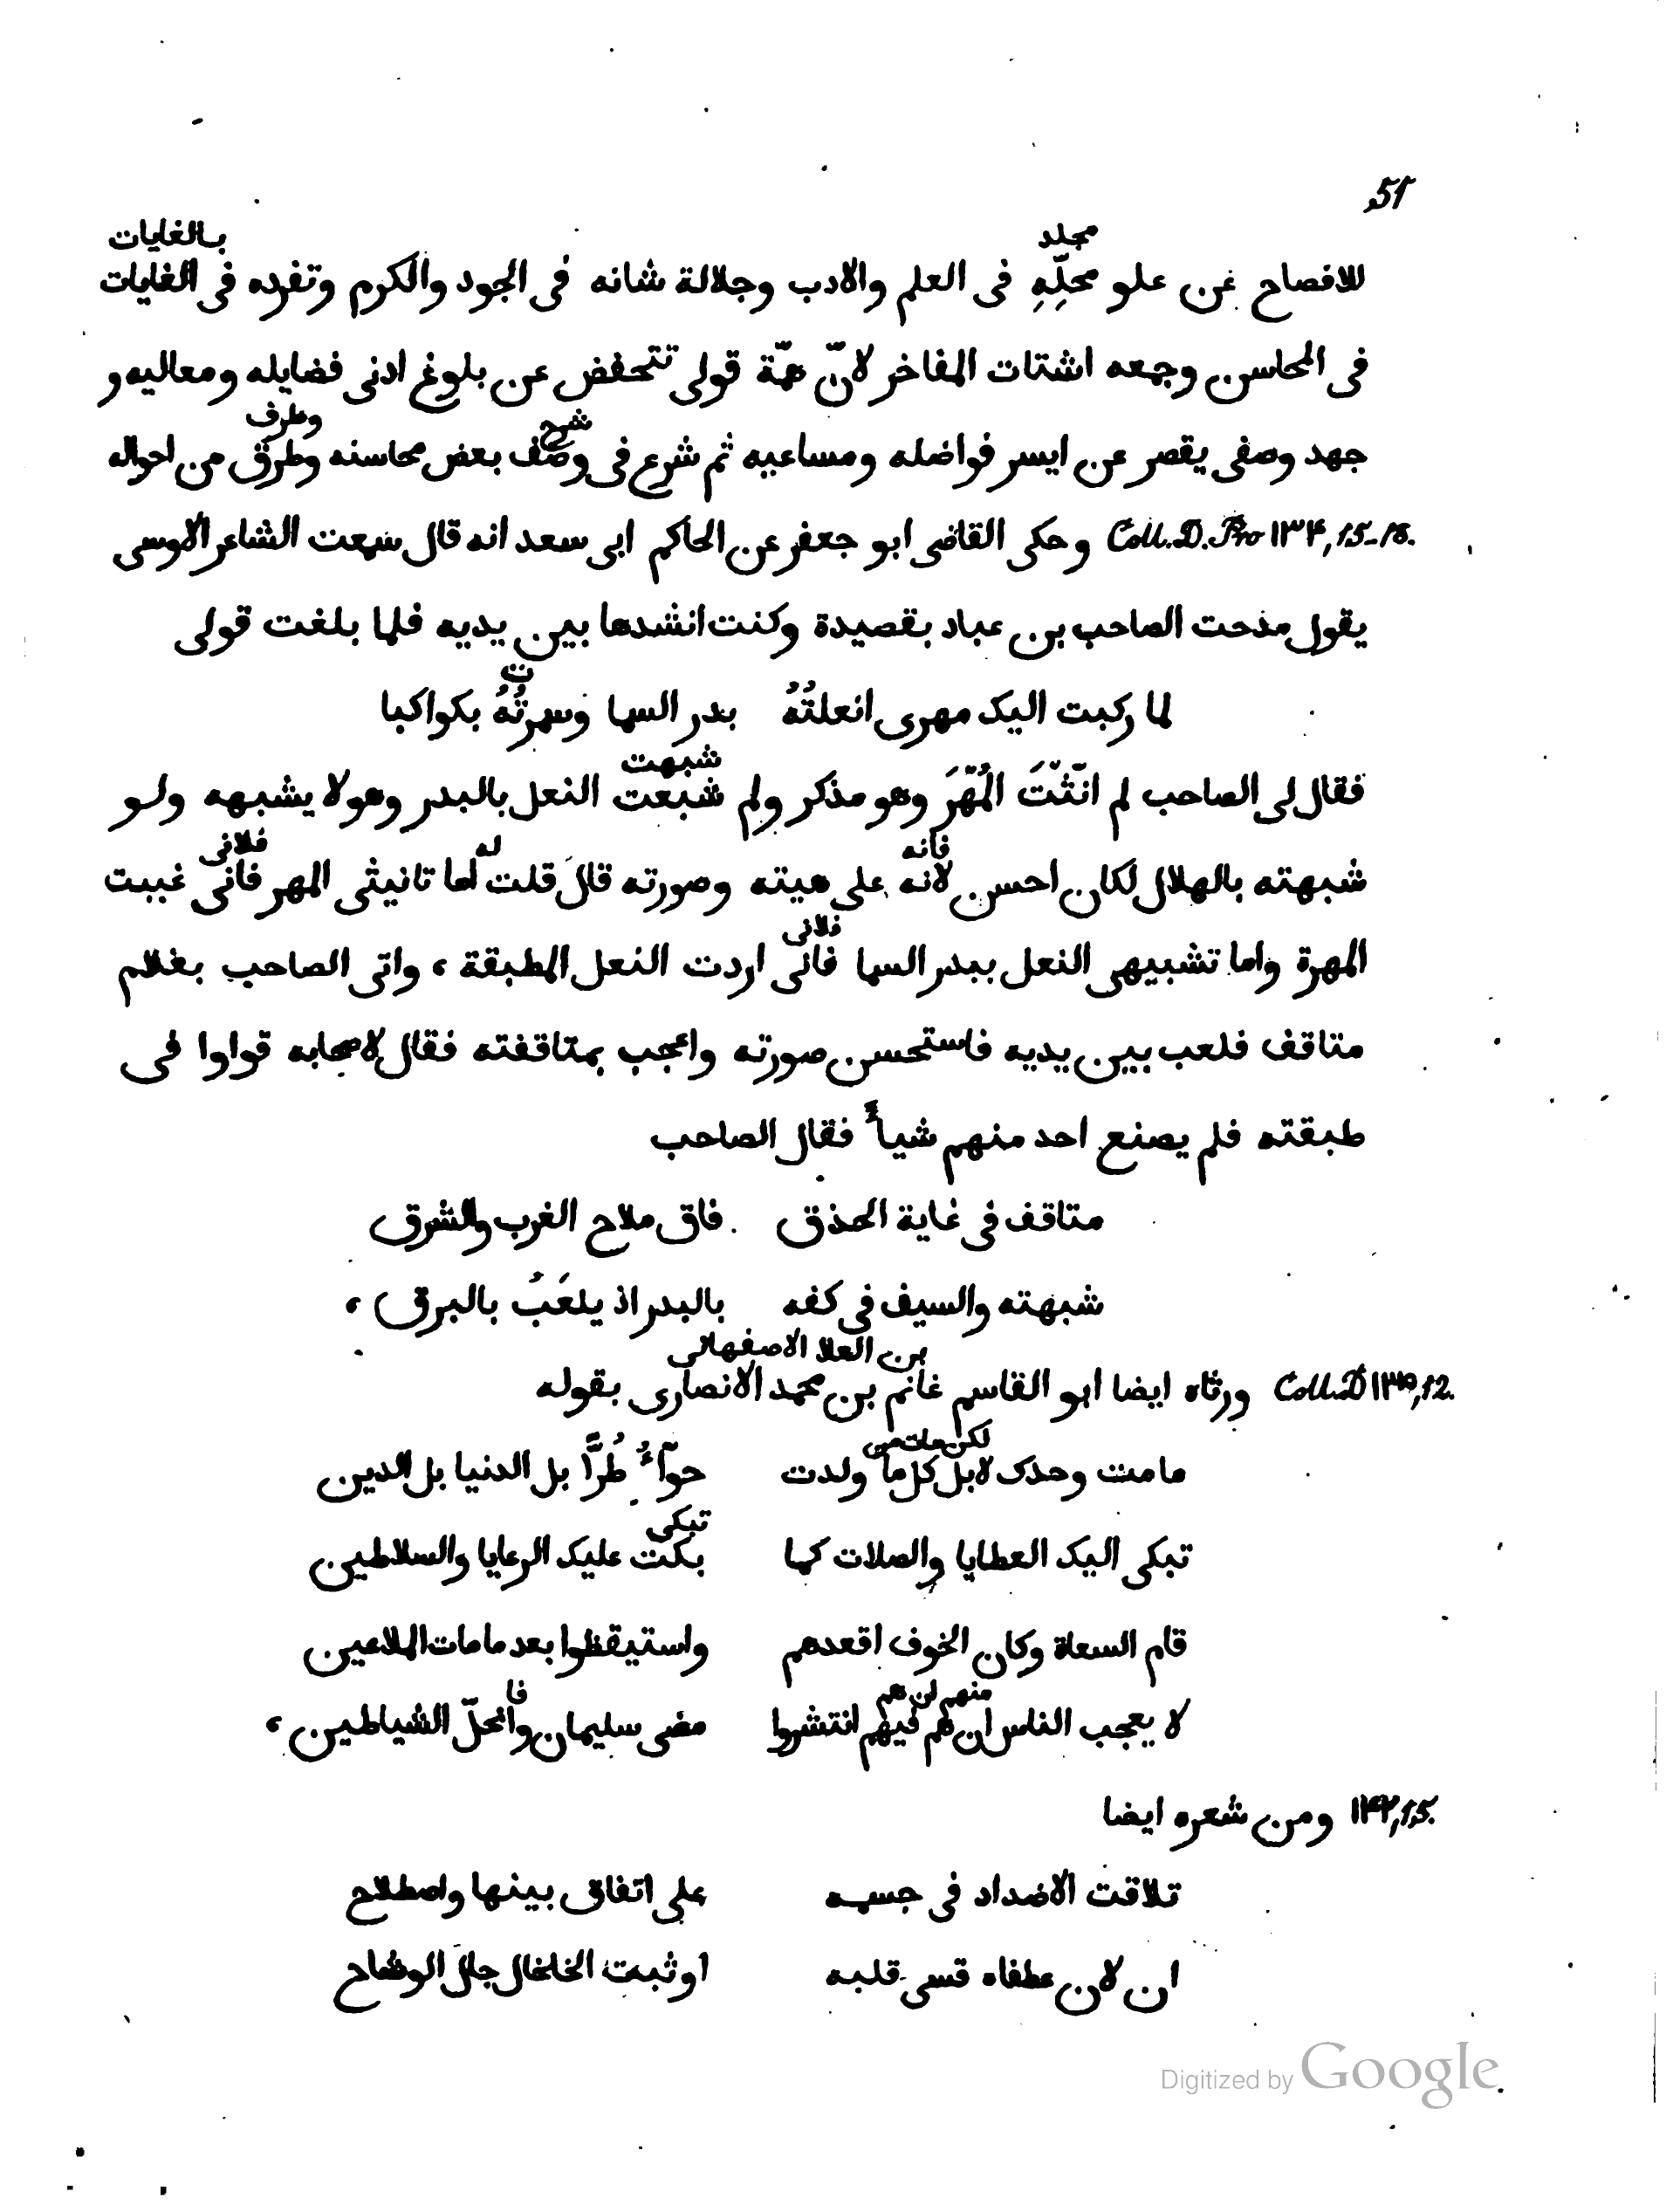 51
مجلد بالغايات
للافصاح عن علو محلّهِ فى العلم والادب وجلالة شانه فى الجود والكرم وتفرده فى الغايات
فى المحاسن وجمعه اشتات المفاخر لانّ همّة قولى تتحفض عن بلوغ ادنى فضايله ومعاليه و
شرح وطرف
جهد وصفى يقصر عن ايسر فواضله ومساعيه ثم شرع فى وصف بعض محاسنه وطرق من احواله
Coll. D. Pro ١٣۴, 15-16. وحكى القاضى ابو جعفر عن الحاكم ابى سعد انه قال سمعت الشاعر الاوسى
يقول مدحت الصاحب بن عباد بقصيدة وكنت انشدها بين يديه فلما بلغت قولى
ت
لما ركبت اليك مهرى انعلتُهُ بدر السما وسمرتُهُ بكواكبا
شبهت
فقال لى الصاحب لم انّثتَ المُهّرَ وهو مذكر ولم شبعت النعل بالبدر وهو لا يشبهه ولو
فانه له فلانى
شبهته بالهلال لكان احسن لانه على هيته وصورته قال قلت اما تانيثى المهر فانى غببت
فلانى
المهرة واما تشبيهى النعل ببدر السما فانى اردت النعل المطبقة ، واتى الصاحب بغلام
متاقف فلعب بين يديه فاستحسن صورته واعجب بمتاقفته فقال لاصحابه قولوا فى
طبقته فلم يصنع احد منهم شياً فقال الصاحب
متاقف فى غاية الحذق فاق ملاح الغرب والشرق
شبهته والسيف فى كفه بالبدر اذ يلعَبُ بالبرق ،
بن العلا الاصفهانى
Coll. D ١٣٥, 12. ورثاه ايضا ابو القاسم غانم بن محمد الانصارى بقوله
لكن مات من
ما مت وحدك لا بل كل ما ولدت حوّآءُ طُرًّا بل الدنيا بل الدين
تبكى
تبكى اليك العطايا والصلات كما بكت عليك الرعايا والسلاطين
قام السعاة وكان الخوف اقعدهم واستيقظوا بعد ما مات الملاعين
منهم ان هم فا
لا يعجب الناس ان هم فيهم انتشروا مضى سليمان وانحلّ الشياطين ،
١۴٢, 15. ومن شعره ايضا
تلاقت الاضداد فى جسمه على اتفاق بينها واصطلاح
ان لان عطفاه قسى قلبه او ثبت الخلخال جال الوشاح
Digitized by Google